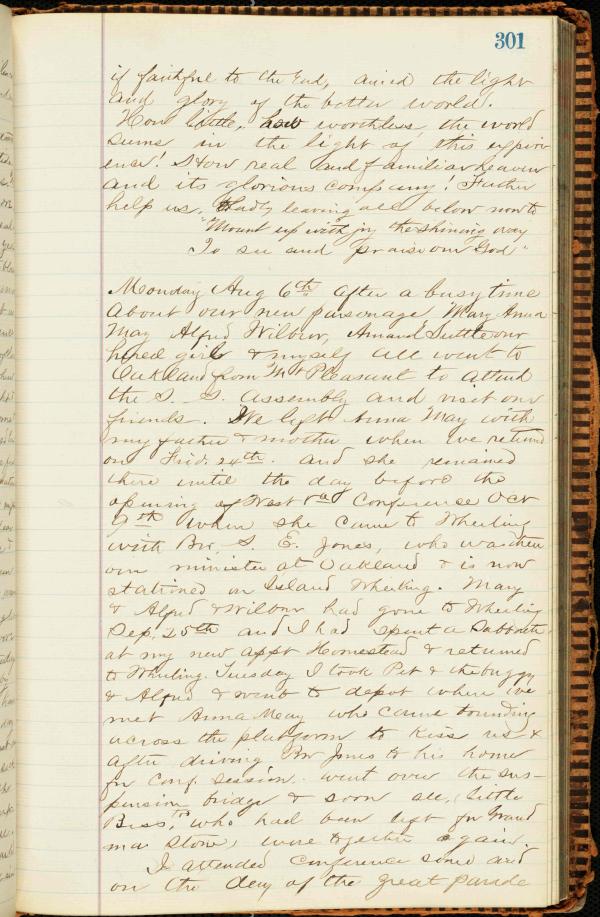 301
if faithful to the End, amid the light
and glory of the better world.
How little, how worthless, the world
seems in the light of this experi-
ence! How real and familiar heaven
and its glorious company! Father
help us, Gladly leaving all below now to
"Mount up with joy the shining way
To see and praise our God"
Monday Aug 6th after a busy time
about our new parsonage Mary Anna
May Alfred Wilbur, Suttle our
hired girl & myself all went to
Oakland from Mt Pleasant to attend
the S. S. Assembly and visit our
friends. We left Anna May with
my father & mother when we return
on Frid. 24th. and she remained
there until the day before the
opening of West Va Conference Oct
9th when she came to Wheeling
with Bro. S. E. Jones, who was then
our minister at Oakland & is now
stationed on Island Wheeling. Mary
& Alfred & Wilbur had gone to Wheeling
Sep. 25th and I had spent a Sabbath
at my new appt Homestead & returned
to Wheeling. Tuesday I took Pet & the buggy
& Alfred & went to depot where we
met Anna May who came bounding
across the platform to kiss us &
after driving Bro Jones to his home
for Conf. session, went over the sus-
pension bridge & soon all, (little
who had been left for Grand
ma Stone) were together again.
I attended Conference some and
on the day of the great parade